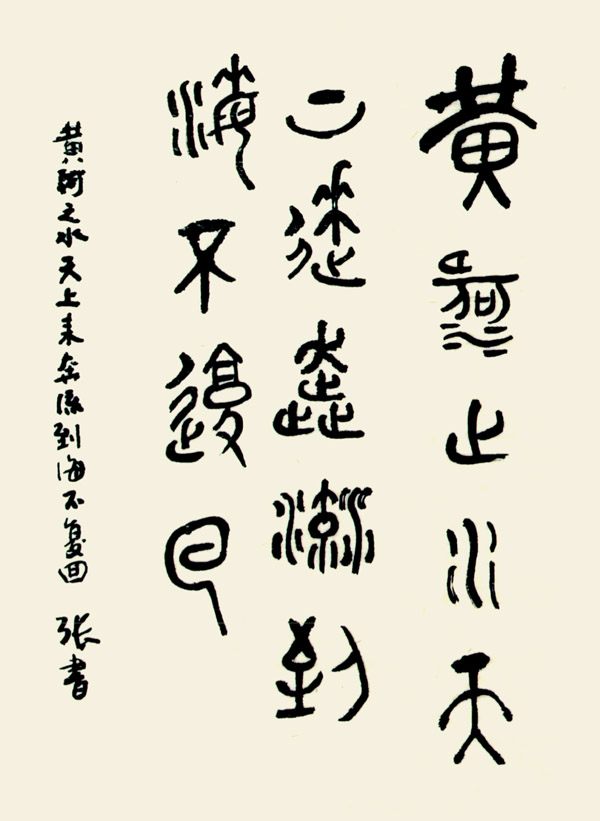 黄河之水天
上来奔流到
海不复回
黄河之水天上来奔流到海不复回 张书